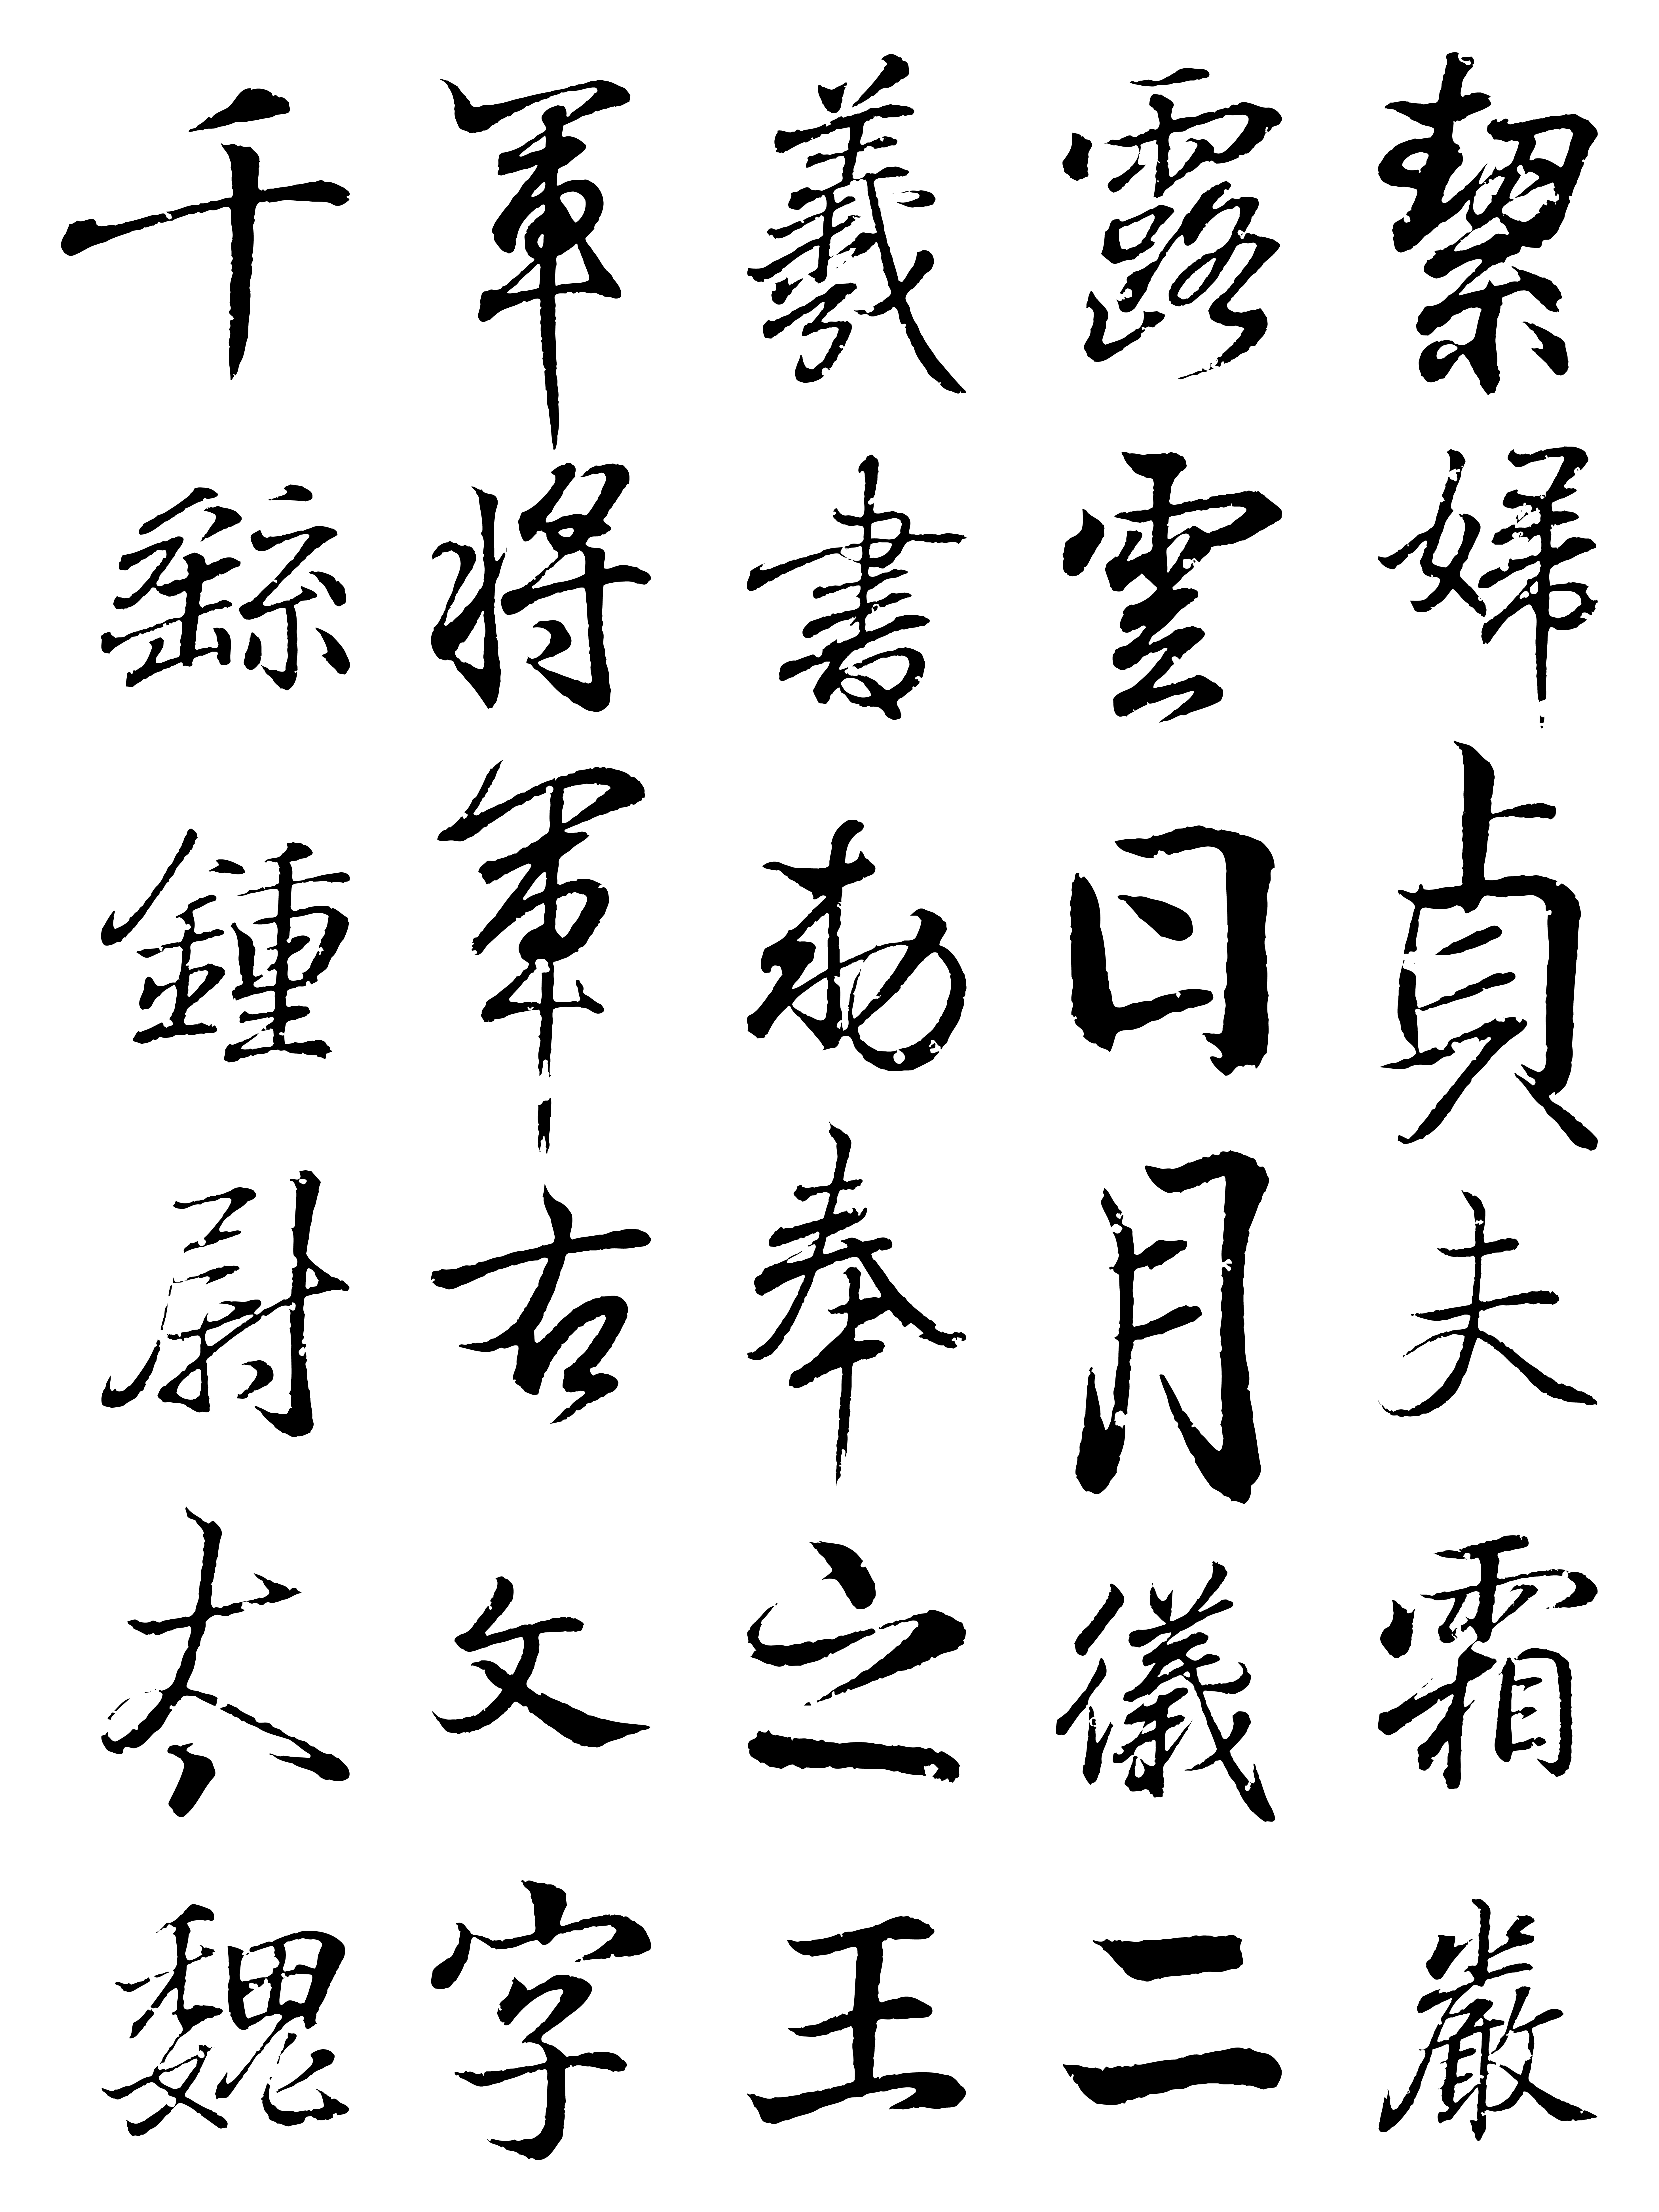 魏太尉鍾繇千
字文右軍將軍
王之奉勑書羲
二儀月日雲露
嚴霜夫貞婦絜